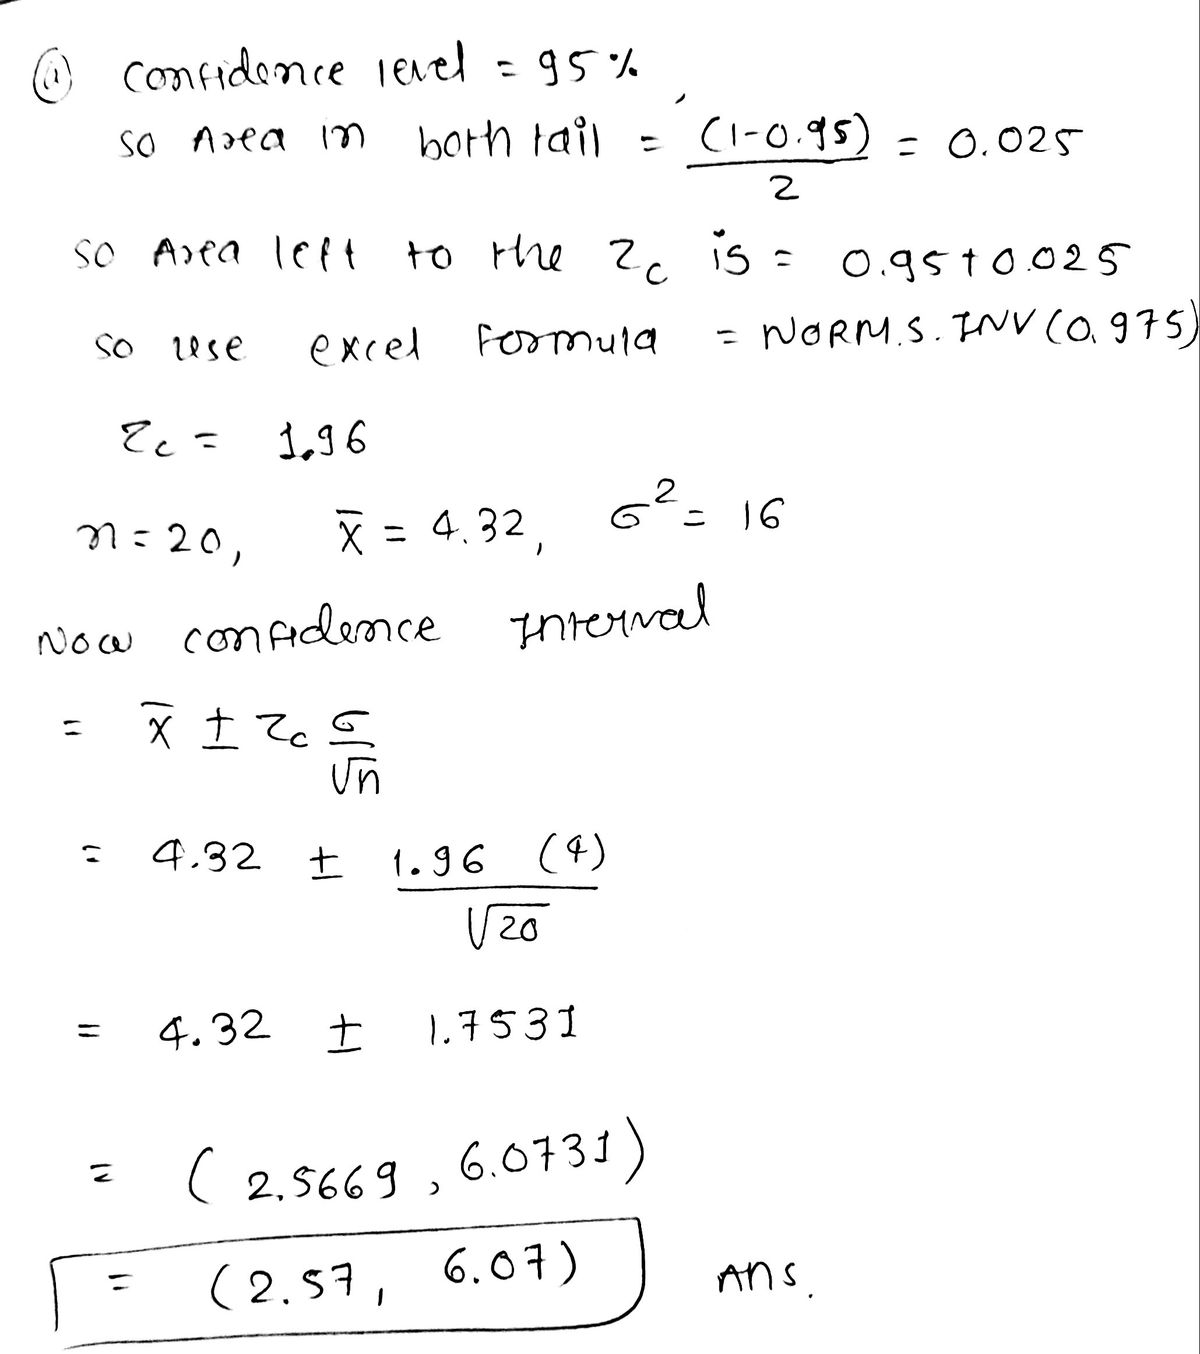 (a) confidence level = 95%
so Area in both tail = (1-0.95)/2 = 0.025
so Area left to the Zc is = 0.95+0.025
so use excel Formula = NORM.S.INV(0.975)
Zc = 1.96
n=20, x̄ = 4.32, σ² = 16
Now confidence Interval
= x̄ ± Zc σ/√n
= 4.32 ± 1.96 (4)/√20
= 4.32 ± 1.7531
= (2.5669, 6.0731)
= (2.57, 6.07) Ans.